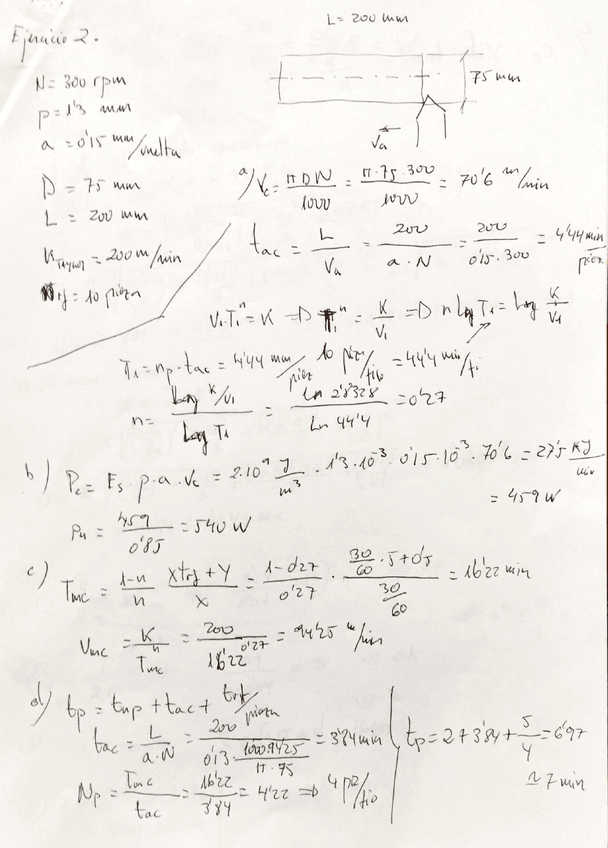 Ejercicio 2.
L = 200 mm
75 mm
Va
N = 300 rpm
p = 1'3 mm
a = 0'15 mm/vuelta
D = 75 mm
L = 200 mm
K Taylor = 200 m/min
= 10 piezas
a) Vc = πDN/1000 = π·75·300/1000 = 70'6 m/min
tac = L/Va = 200/a·N = 200/0'15·300 = 4'44 min/pieza
V1·T1^n = K => T1^n = K/V1 => n Log T1 = Log K/V1
T1 = np·tac = 4'44 mm/pieza 10 piez/filo = 44'4 min/fi
n = Log K/V1 / Log T1 = Ln 2'8328 / Ln 44'4 = 0'27
b) Pc = Es·p·a·Vc = 2·10^9 J/m³ · 1'3·10^-3 · 0'15·10^-3 · 70'6 = 27'5 KJ/min
= 459 W
Pu = 459/0'85 = 540 W
c) Tmc = 1-n/n xtrf+y/x = 1-0'27/0'27 · 30/60·5+0'5 / 30/60 = 16'22 min
Vmc = K/Tmc^n = 200/16'22^0'27 = 94'25 m/min
d) tp = tnp + tac + trf/piezas
tac = L/a·N = 200 / 0'13·1000·9425/π·75 = 3'84 min
Np = Tmc/tac = 16'22/3'84 = 4'22 => 4 pz/filo
tp = 2+3'84+5/4 = 6'97
≃ 7 min